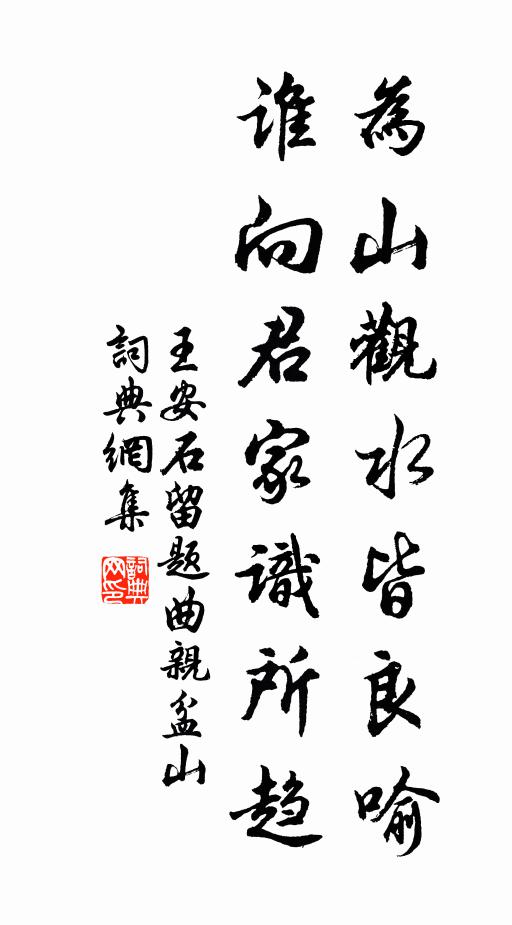 為山觀水皆良喻
誰向君家識所趋
王安石留题曲親盆山
詞典網集
詞典网印